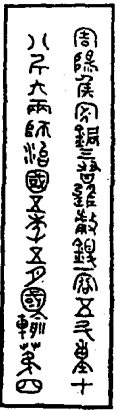 周陽侯家銅三習甗鍑一容五斗重十
八斤六兩治國五年五月國輸第四